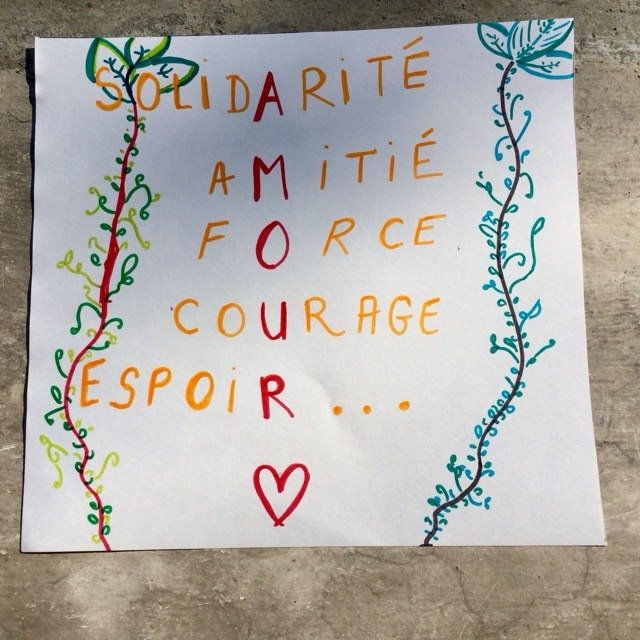 SOLiDARiTÉ
AMiTiÉ
FORCE
COURAGE
ESPOiR...